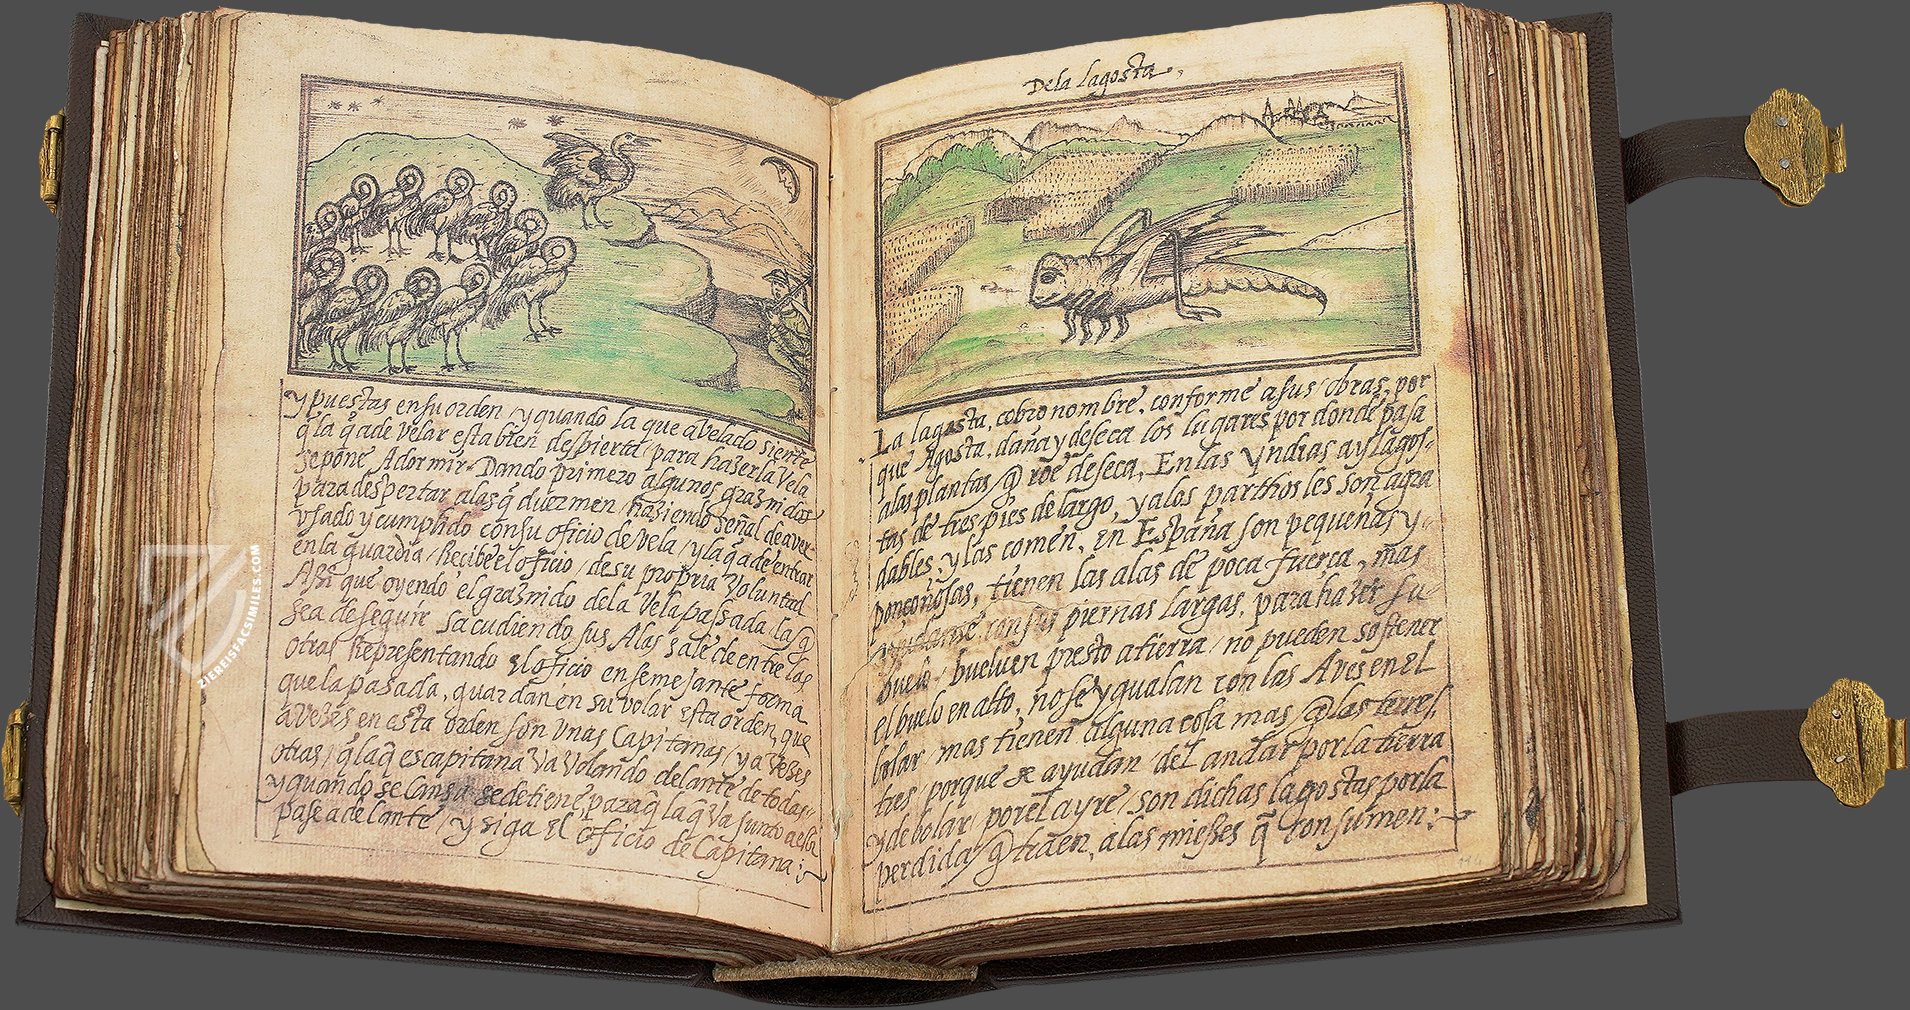 y puestas en su orden / y quando la que a velado siente
q̃ la q̃ a de velar esta bien despierta / para hazer la vela
se pone A dormir. Dando primero algunos graznidos
para despertar alas q̃ duermen / haziendo señal de aver
vsado y cumplido con su oficio de vela / y la q̃ a de entrar
en la guardia / Recibe el oficio / de su propria Voluntad
Assi que oyendo el graznido de la Vela passada, la q̃
sea de seguir sacudiendo sus Alas sale de entre las
otras Representando el oficio en semejante forma
que la pasada, guardan en su volar esta orden, que
a vezes en esta orden son vnas Capitanas / y a vezes
otras / q̃ la q̃ es capitana va volando delante de todas
y quando se cansa se detiene, para q̃ la q̃ va junto a ella
pase adelante / y siga el oficio de Capitana:
De la lagosta.
La lagosta, cobro nombre, conforme a sus obras, por
que Agosta, daña y deseca los lugares por donde pasa
a las plantas q̃ roe deseca, En las yndias ay lagos-
tas de tres pies de largo, y a los parthos les son agra
dables, y las comen, en España son pequeñas y
ponçoñosas, tienen las alas de poca fuerça, mas
ayudanse con sus piernas largas, para hazer su
buelo / bueluen presto a tierra / no pueden sostener
el buelo en alto, no se ygualan con las Aves en el
bolar / mas tienen alguna cosa mas q̃ las terres
tres porque se ayudan / del andar por la tierra
y de bolar / por el ayre / son dichas lagostas por la
perdida q̃ traen, a las mieses q̃ consumen:
114
ZIEREISFACSIMILES.COM